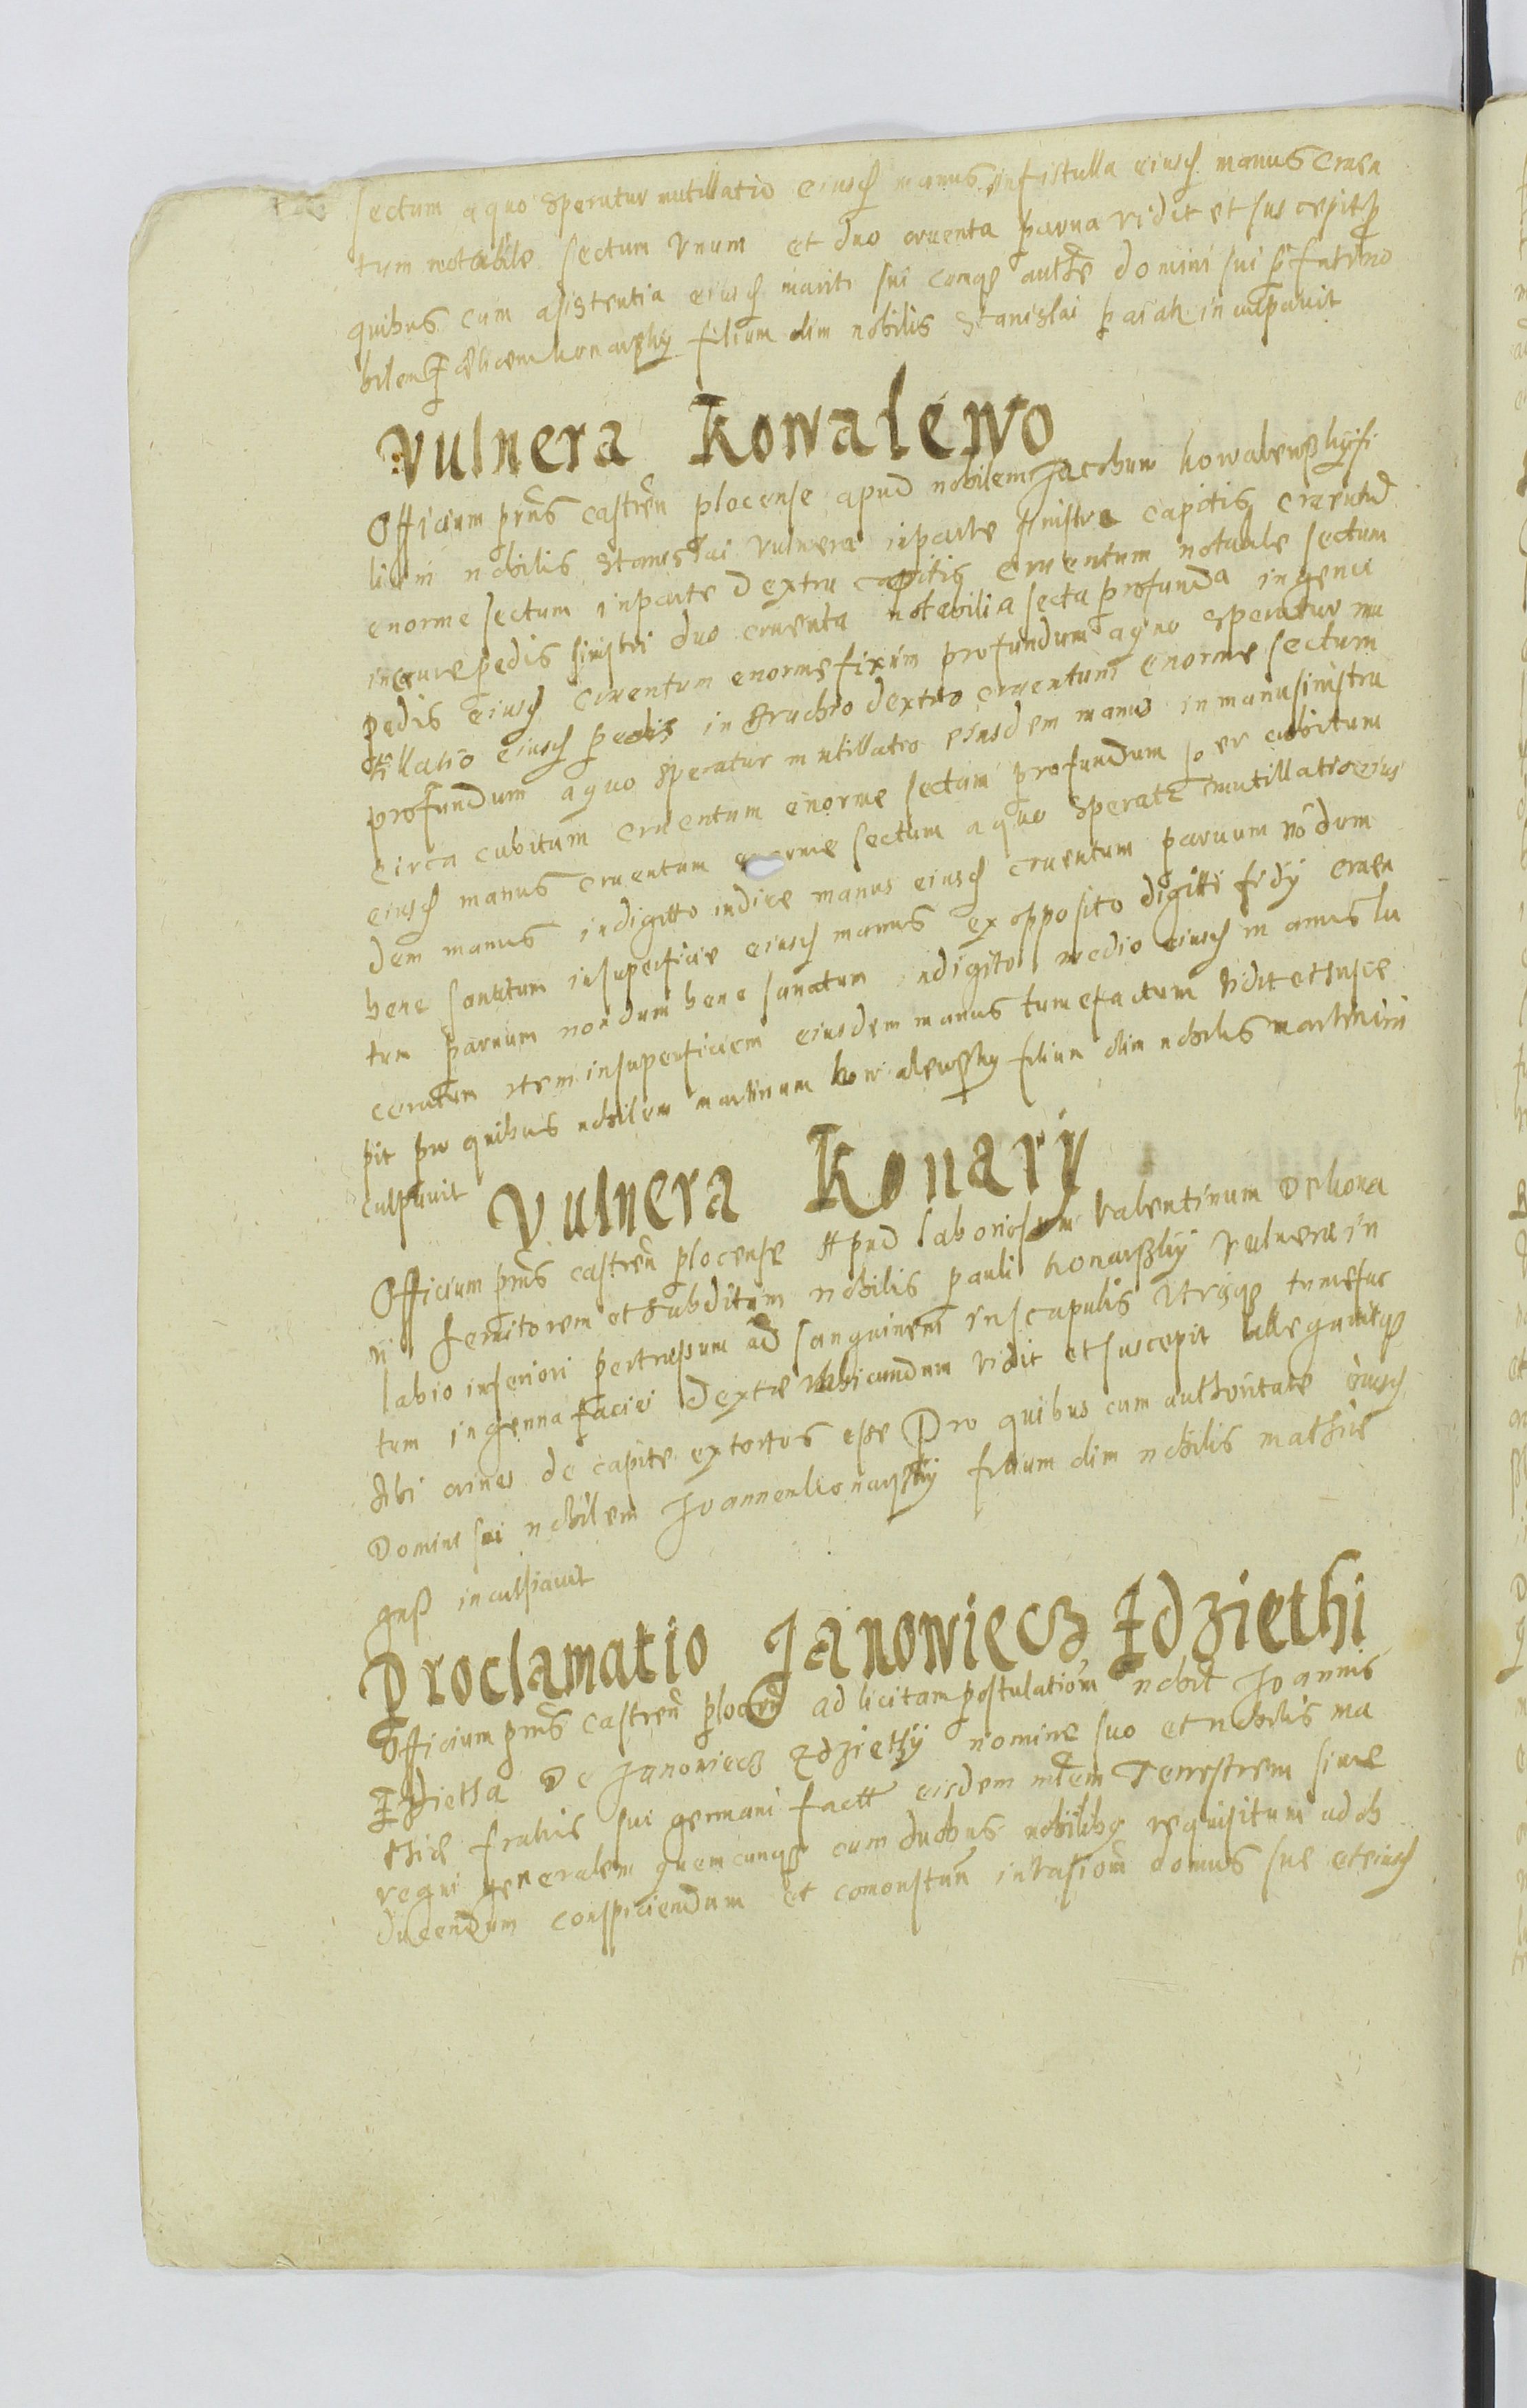 sectum a quo speratur mutillatio eiusd manus in fistulla eiusd manus cruen
tum notabile sectum unum et duo cruenta parua vidit et suscepit p
quibus cum asistentia eiusd mariti sui domini sui
bilem Fælicem konarsky filium olim nobilis Stanislai inculpauit
Vulnera Kowalewo
Officium pñs castreñ plocense apud nobilem Jacobum kowalewsky fi
lium nobilis Stanislai vulnera in parte sinistra capitis cruentu
enorme sectum in parte dextra capitis cruentum notabile sectum
in crure pedis sinistri duo cruenta notabilia secta profunda in genu
pedis eiusd cruentum enorme fixum profundum a quo speratur mu
tillatio eiusd pedis in brachio dextro cruentum enorme sectum
profundum a quo speratur mutillatio eiusdem manus in manu sinistra
circa cubitum cruentum enorme sectum profundum cubitum
eiusd manus cruentum enorme sectum a quo sperat mutillatio eius
dem manus in digitto indice manus eiusd cruentum paruum nõdum
bene sanatum in superficie eiusd manus ex opposito digitti cruen
tum paruum nondum bene sanatum in digito medio eiusd manus lu
ceratum item in superficiem eiusdem manus tumefactum vidit et susce
pit pro quibus nobilem martinum kowalewsky filium olim nobilis martini in
culpauit
Vulnera Konary
Officium pñs castreñ plocense Apud laboriosum valentinum De kona
ri seruitorem et subditum nobilis pauli konarsky vulnera in
labio inferiori pertrussum ad sanguinem in scapulis utrisq tumefac
tum in genna faciei dextræ rubicundum vidit et suscepit allegauitq
sibi crines de capite extortos esse Pro quibus cum authoritate eiusd
Domini sui nobilem Joannem konarsky filium olim nobilis mathiæ
inculpauit
Proclamatio Janowiecz Idziethi
Officium pñs castreñ ploceñ ad licitam postulationẽ nobil Joannis
Idzietha De Janowiecz Idziethy nomine suo et nobilis ma
thiæ fratris sui germani eisdem Terrestrem siue
regni generalem quemcunq cum duobus nobilibq requisitum ad ob
ducendum conspiciendum et inuasionẽ domus suæ et eiusd